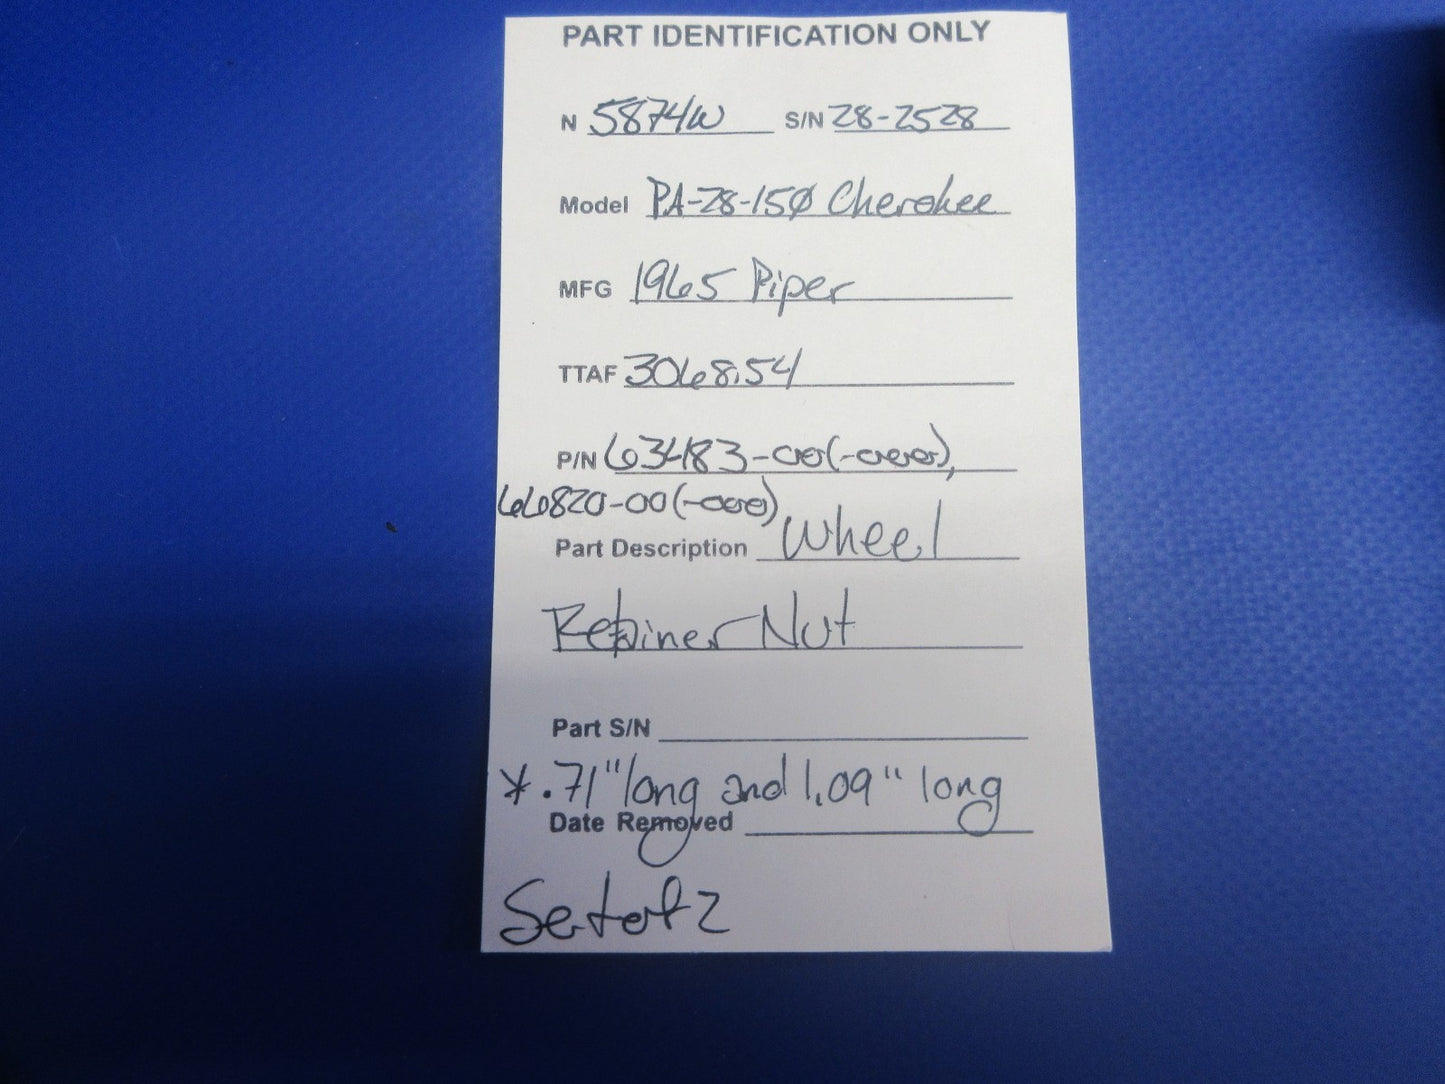 PART IDENTIFICATION ONLY
N 5874W S/N 28-2528
Model PA-28-150 Cherokee
MFG 1965 Piper
TTAF 3068.54
P/N 63483-00(-000),
66820-00(-000)
Part Description Wheel
Retainer Nut
Part S/N
* .71" long and 1.09" long
Date Removed
Set of 2